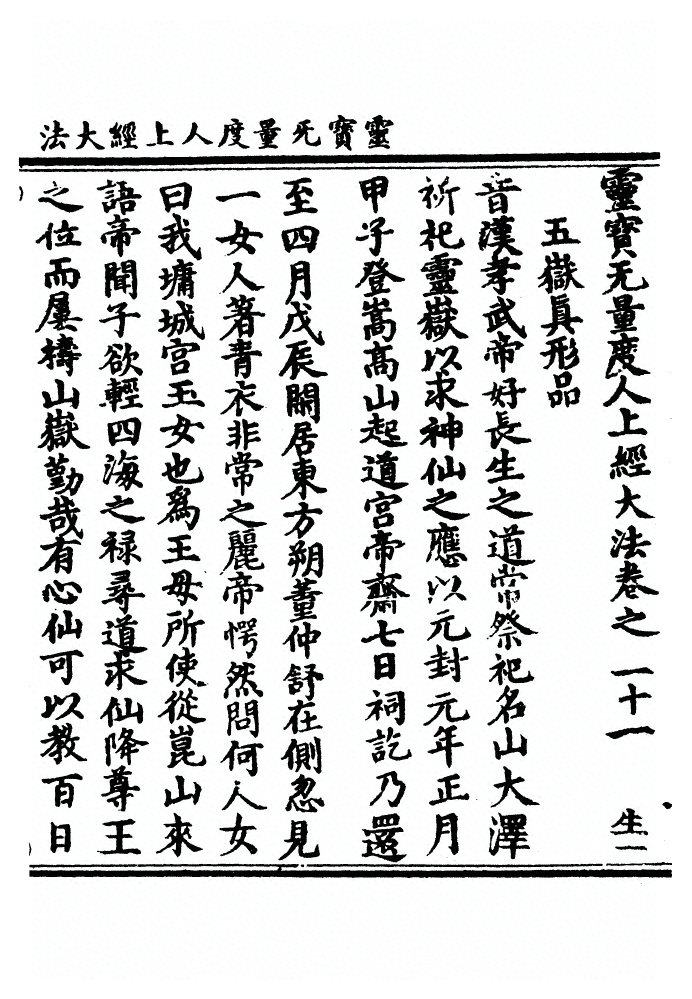 靈寶无量度人上經大法
靈寶无量度人上經大法卷之二十一 生一
五嶽真形品
昔漢孝武帝好長生之道常祭祀名山大澤
祈祀靈嶽以求神仙之應以元封元年正月
甲子登嵩高山起道宮帝齋七日祠訖乃還
至四月戊辰閑居東方朔董仲舒在側忽見
一女人著青衣非常之麗帝愕然問何人女
曰我墉城宮玉女也為王母所使從崑山來
語帝聞子欲輕四海之祿尋道求仙降尊王
之位而屢禱山嶽勤哉有心仙可以教百日